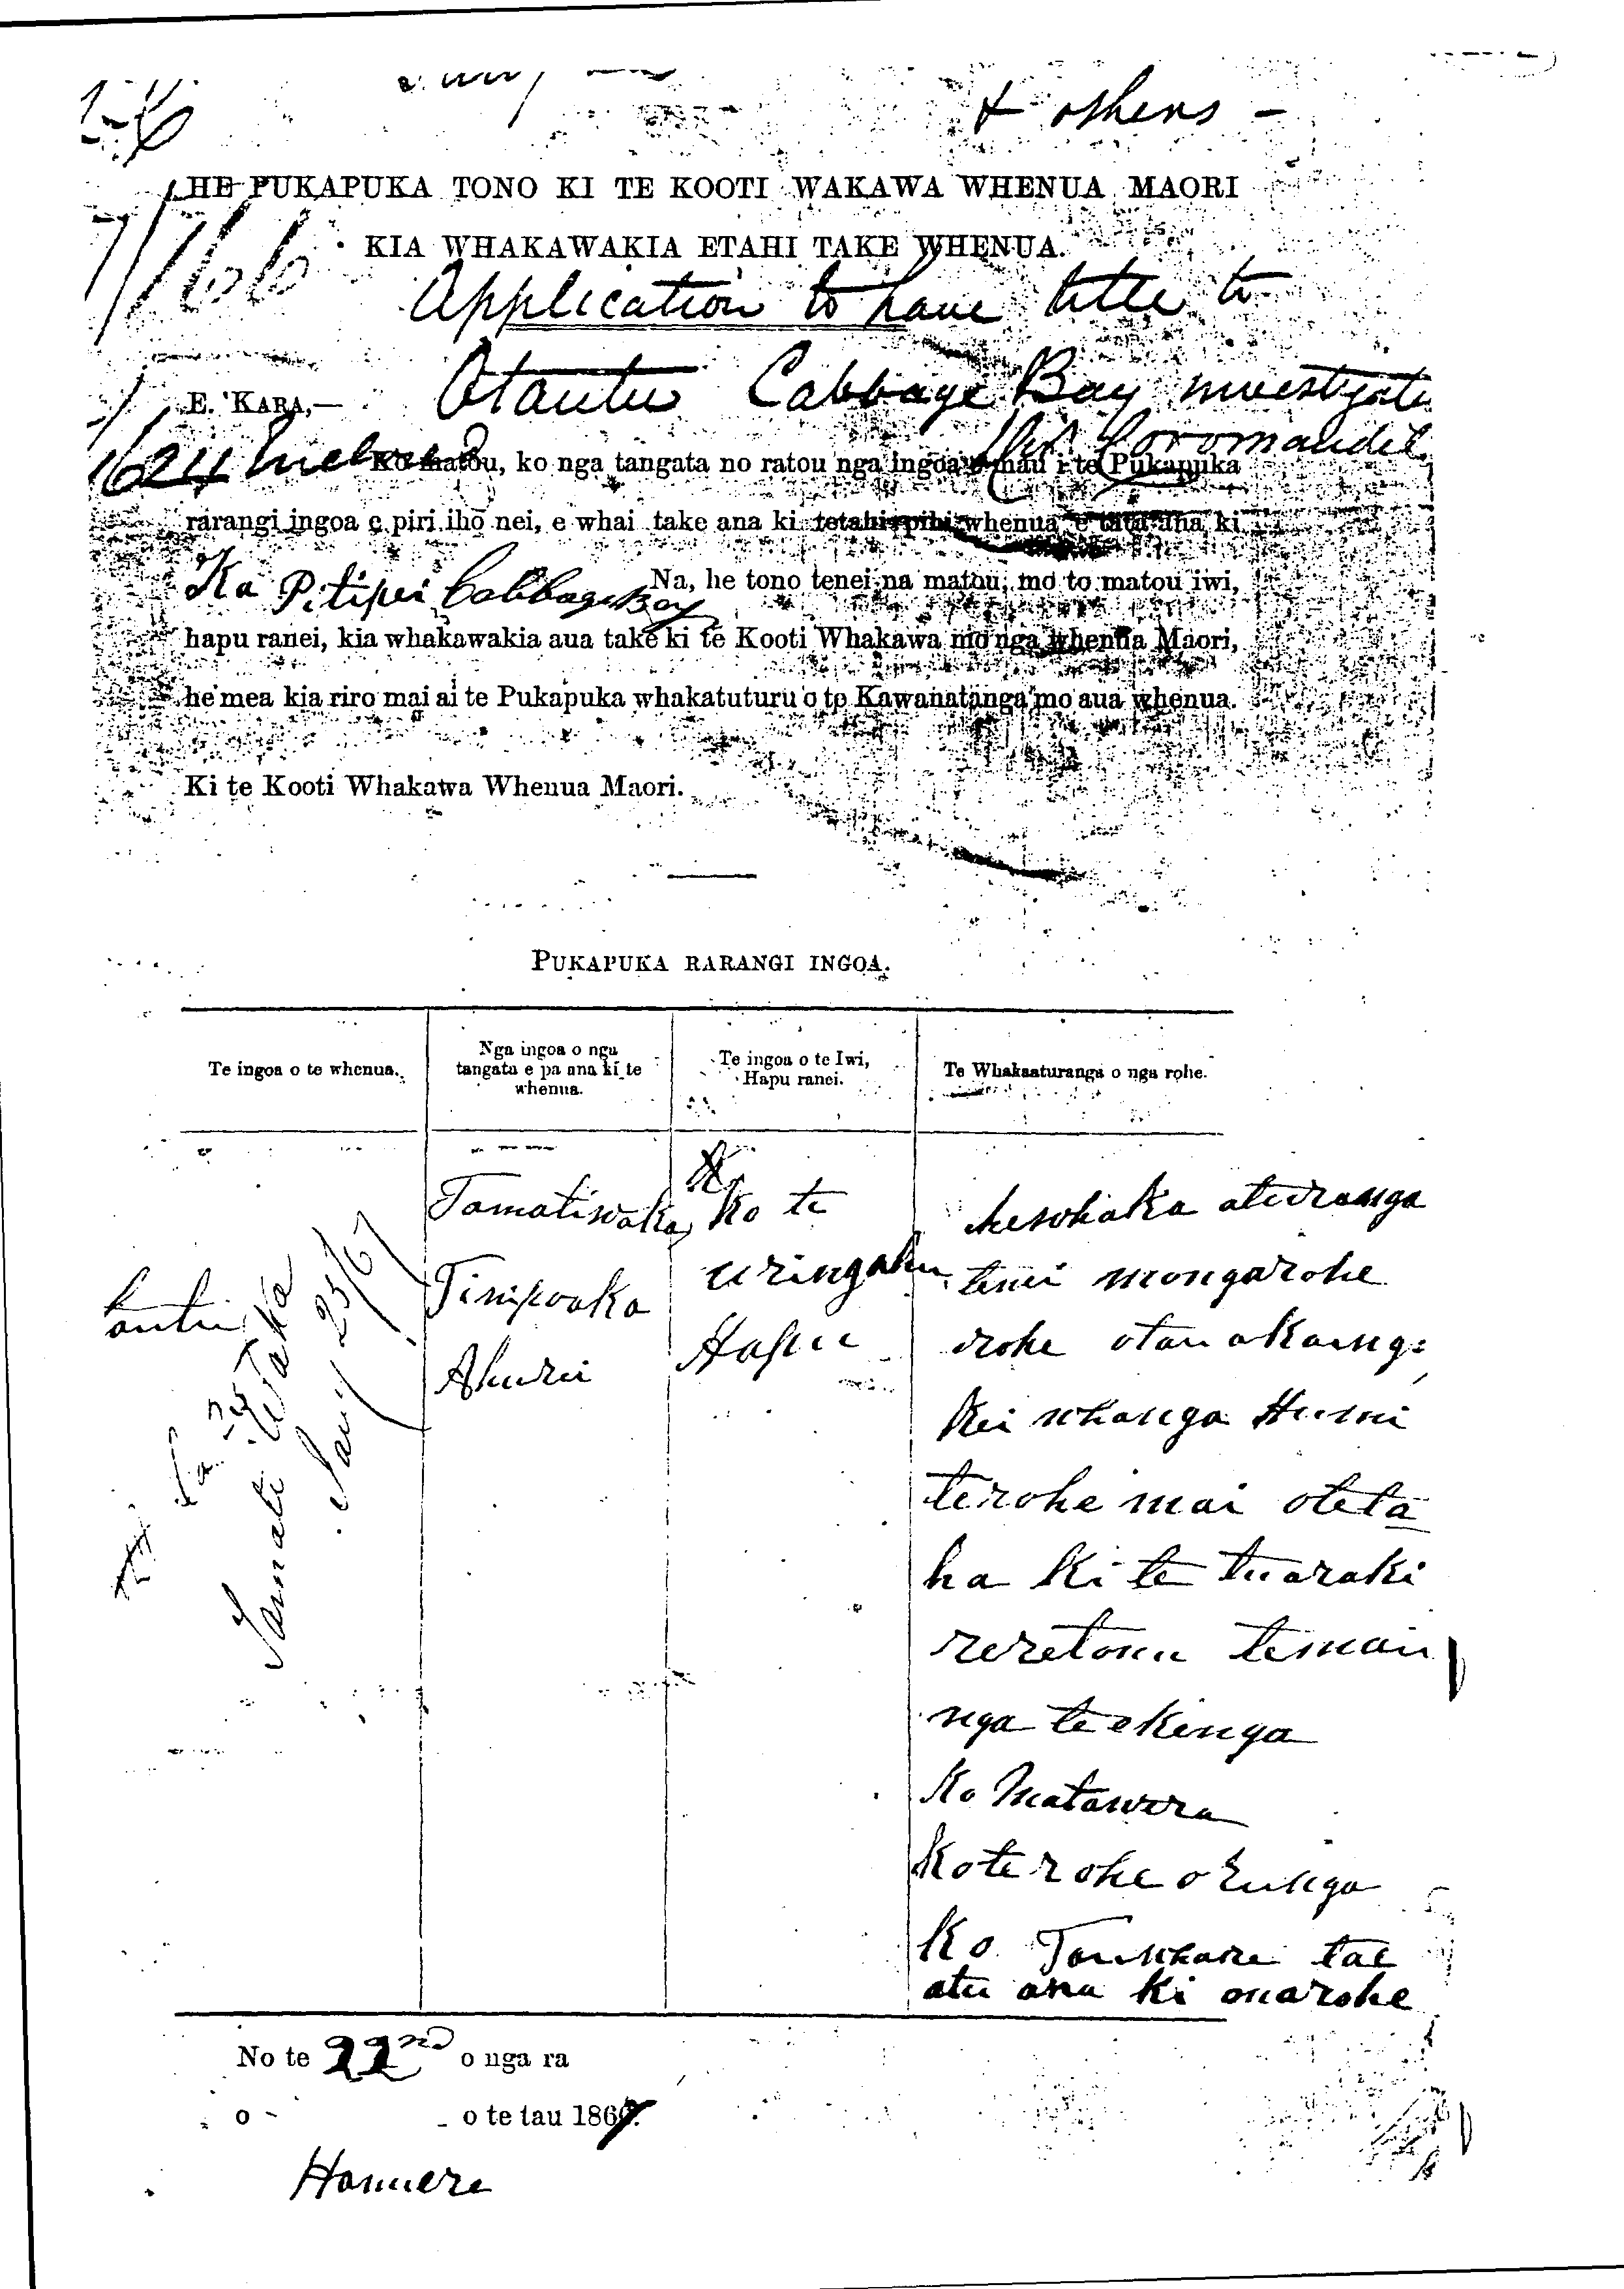 & others -
HE PUKAPUKA TONO KI TE KOOTI WAKAWA WHENUA MAORI
KIA WHAKAWAKIA ETAHI TAKE WHENUA.
Application to have title to
Otautu Cabbage Bay investigate
E. KARA,—
Coromandel
Ko matou, ko nga tangata no ratou nga ingoa e mau i te Pukapuka
rarangi ingoa e piri iho nei, e whai take ana ki tetahi pihi whenua e tata ana ki
Ka Pitipei Cabbage Bay Na, he tono tenei na matou, mo to matou iwi,
hapu ranei, kia whakawakia aua take ki te Kooti Whakawa mo nga whenua Maori,
he mea kia riro mai ai te Pukapuka whakatuturu o te Kawanatanga mo aua whenua.
Ki te Kooti Whakawa Whenua Maori.
PUKAPUKA RARANGI INGOA.
Te ingoa o te whenua.
Nga ingoa o nga
tangata e pa ana ki te
whenua.
Te ingoa o te Iwi,
Hapu ranei.
Te Whakaaturanga o nga rohe.
Tamati Waka
Jany 25/67
Tamatiwaka
Tinipoaka
Ahurei
Ko te
uringahu
Hapu
hewhaka aturanga
tenei mongarohe
rohe otau akaing
Kei whanga Humi
terohe mai oteta
ha ki te tuaraki
reretonu temau
nga te ekenga
Ko Matawera
Koterohe o runga
Ko tae
atu ana ki onarohe
No te 22nd o nga ra
o o te tau 1867.
Hanuere